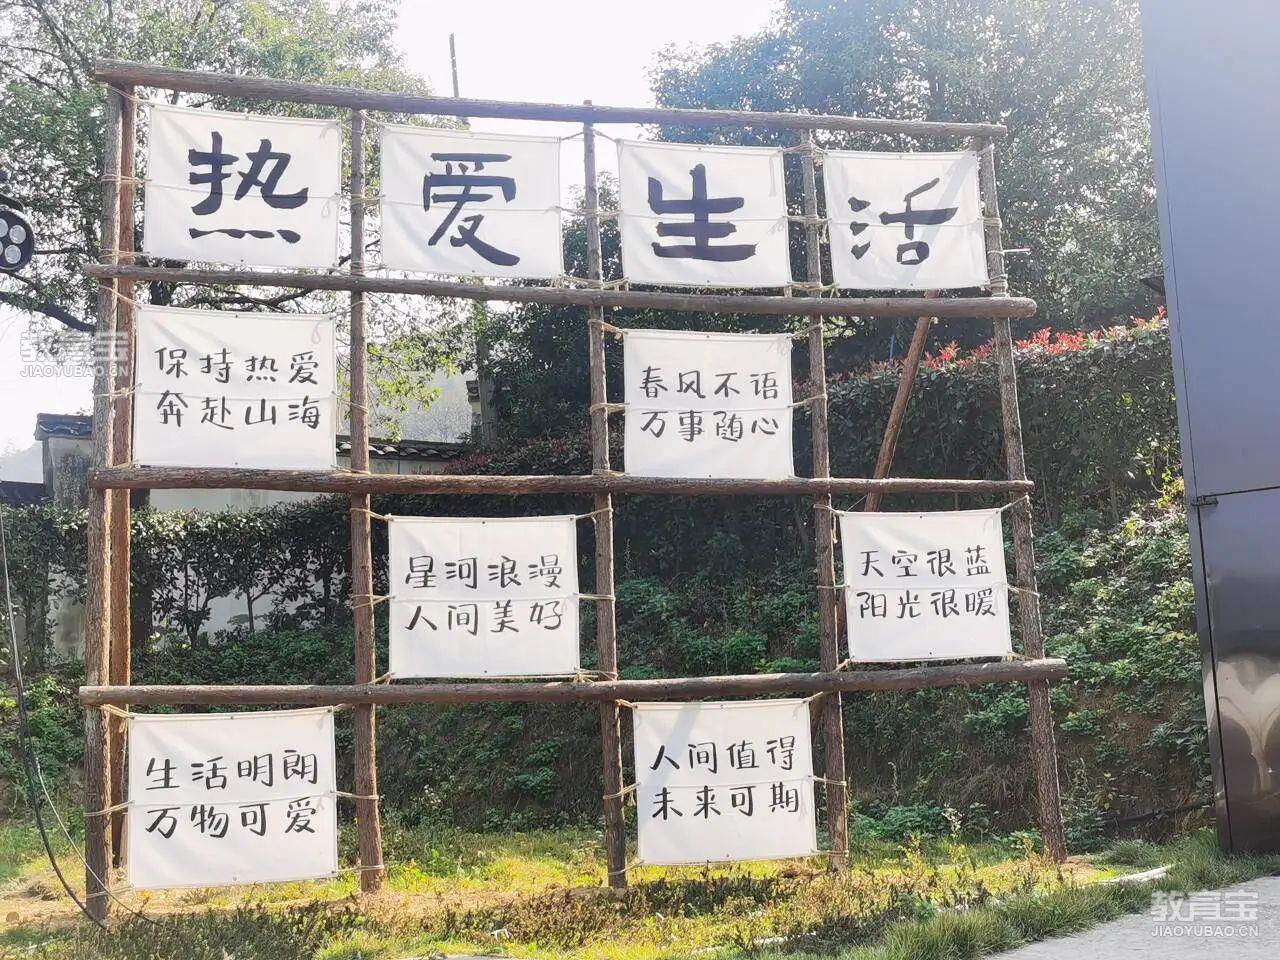 热爱生活
保持热爱
奔赴山海
春风不语
万事随心
星河浪漫
人间美好
天空很蓝
阳光很暖
生活明朗
万物可爱
人间值得
未来可期
教育宝
JIAOYUBAO.CN
教育宝
JIAOYUBAO.CN